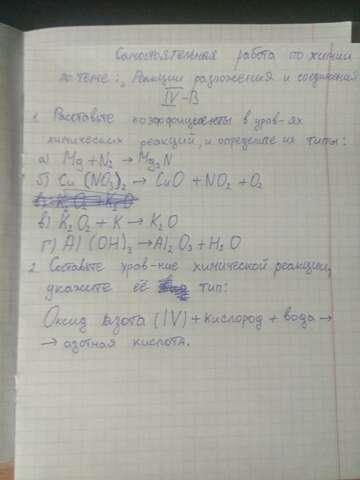 Самостоятельная работа по химии
по теме: „Реакции разложения и соединения
IV-B
1. Расставьте коэффициенты в урав-ях
химических реакций, и определите их типы:
а) Mg + N₂ → Mg₃N
б) Cu (NO₃)₂ → CuO + NO₂ + O₂
в) K₂O₂ + K → K₂O
г) Al (OH)₃ → Al₂O₃ + H₂O
2. Составьте урав-ние химической реакции,
укажите её тип:
Оксид азота (IV) + кислород + вода →
→ азотная кислота.